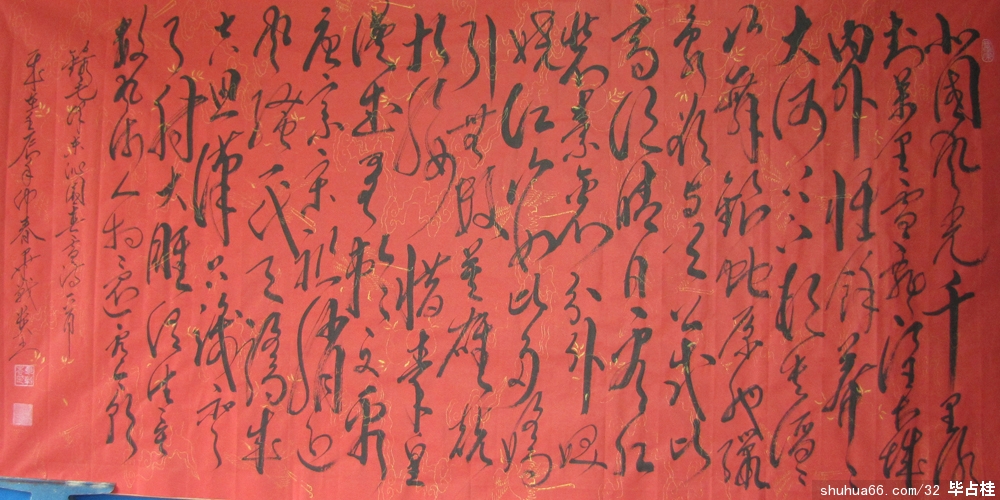 北国风光千里冰
封万里雪飘望长城
内外惟余莽々
大河上下顿失滔々
山舞银蛇原驰蜡
象欲与天公试比
高须晴日看红
装素裹分外妖
娆江山如此多娇
引无数英雄竞
折腰惜秦皇
汉武略输文采
唐宗宋祖稍逊
风骚一代天骄成
吉思汗只识弯
弓射大雕俱往矣
数风流人物还看今朝
录毛泽东沁园春雪词一首
仲春毕占桂书
shuhua66.com/32 毕占桂